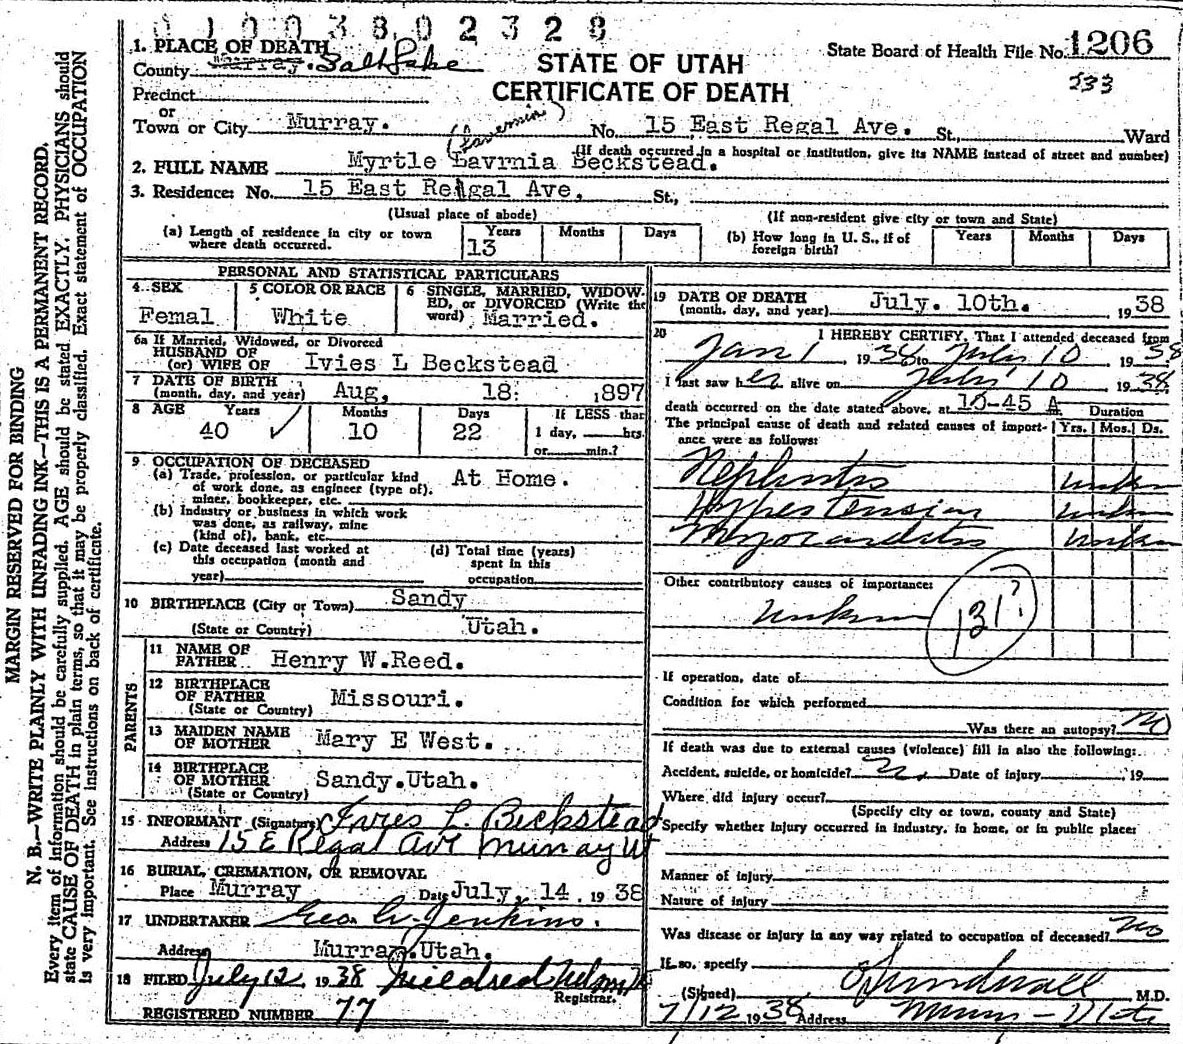 0100380 2328
1. PLACE OF DEATH
County Murray. Salt Lake
STATE OF UTAH
CERTIFICATE OF DEATH
State Board of Health File No. 1206
233
Precinct
or
Town or City Murray. No. 15 East Regal Ave. St., Ward
(If death occurred in a hospital or institution, give its NAME instead of street and number)
2. FULL NAME Myrtle Lavrnia Beckstead.
3. Residence: No. 15 East Regal Ave, St.,
(Usual place of abode) (If non-resident give city or town and State)
(a) Length of residence in city or town where death occurred. Years 13 Months Days
(b) How long in U. S., if of foreign birth? Years Months Days
PERSONAL AND STATISTICAL PARTICULARS
4 SEX Femal
5 COLOR OR RACE White
6 SINGLE, MARRIED, WIDOWED, or DIVORCED (Write the word) Married.
6a If Married, Widowed, or Divorced
HUSBAND OF
(or) WIFE OF Ivies L Beckstead
7 DATE OF BIRTH
(month, day, and year) Aug, 18: ,897
8 AGE Years 40 Months 10 Days 22 If LESS than
1 day, hrs.
or min.?
9 OCCUPATION OF DECEASED
(a) Trade, profession, or particular kind of work done, as engineer (type of), miner, bookkeeper, etc. At Home.
(b) Industry or business in which work was done, as railway, mine (kind of), bank, etc.
(c) Date deceased last worked at this occupation (month and year)
(d) Total time (years) spent in this occupation
10 BIRTHPLACE (City or Town) Sandy
(State or Country) Utah.
PARENTS
11 NAME OF FATHER Henry W.Reed.
12 BIRTHPLACE OF FATHER
(State or Country) Missouri.
13 MAIDEN NAME OF MOTHER Mary E West.
14 BIRTHPLACE OF MOTHER
(State or Country) Sandy.Utah.
15 INFORMANT (Signature) Ivies L. Beckstead
Address 15 E Regal Ave Murray Ut
16 BURIAL, CREMATION, OR REMOVAL
Place Murray Date July, 14. 19 38
17 UNDERTAKER Geo. W. Jenkins.
Address Murray, Utah.
18 FILED July 12, 1938 Mildred
Registrar.
REGISTERED NUMBER 77
19 DATE OF DEATH
(month, day, and year) July. 10th. 1938
20 I HEREBY CERTIFY, That I attended deceased from
Jan 1, 1938 to July 10, 1938
I last saw her alive on July 10, 1938
death occurred on the date stated above, at 10-45 A.
Duration
The principal cause of death and related causes of importance were as follows: Yrs. Mos. Ds.
Nephritis unkn
Hypertension unkn
Myocarditis unkn
Other contributory causes of importance:
unknown
131?
If operation, date of
Condition for which performed
Was there an autopsy? no
If death was due to external causes (violence) fill in also the following:
Accident, suicide, or homicide? no Date of injury , 19
Where did injury occur?
(Specify city or town, county and State)
Specify whether injury occurred in industry, in home, or in public place:
Manner of injury
Nature of injury
Was disease or injury in any way related to occupation of deceased? no
If so, specify
(Signed) Sundwall M.D.
7/12 1938 Address Murray - Utah
MARGIN RESERVED FOR BINDING
N. B.—WRITE PLAINLY WITH UNFADING INK—THIS IS A PERMANENT RECORD.
Every item of information should be carefully supplied. AGE should be stated EXACTLY. PHYSICIANS should
state CAUSE OF DEATH in plain terms, so that it may be properly classified. Exact statement of OCCUPATION
is very important. See instructions on back of certificate.